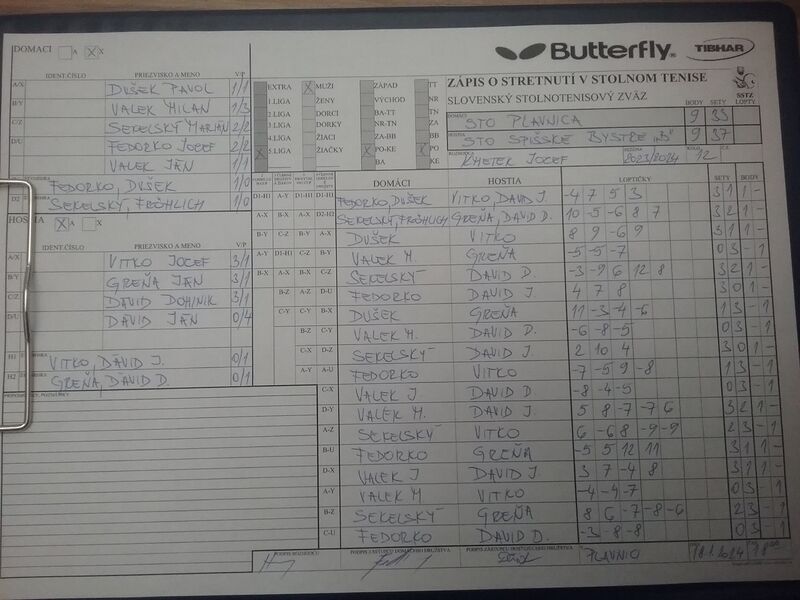 DOMÁCI A X X
Butterfly® TIBHAR
IDENT.ČÍSLO PRIEZVISKO A MENO V/P
A/X DUŠEK PAVOL 1/1
B/Y VALEK MILAN 1/3
C/Z SEKELSKÝ MARIÁN 2/2
D/U FEDORKO JOZEF 2/2
VALEK JÁN 1/1
FEDORKO, DUŠEK 1/0
D2 SEKELSKÝ, FRÖHLICH 1/0
HOSTIA X A X
IDENT.ČÍSLO PRIEZVISKO A MENO V/P
A/X VITKO JOZEF 3/1
B/Y GREŇA JÁN 3/1
C/Z DAVID DOMINIK 3/1
D/U DAVID JÁN 0/4
H1 VITKO, DAVID J. 0/1
H2 GREŇA, DAVID D. 0/1
EXTRA X MUŽI ZÁPAD TT
1.LIGA ŽENY VÝCHOD NR
2.LIGA DORCI BA-TT TN
3.LIGA DORKY NR-TN ZA
4.LIGA ŽIACI ZA-BB BB
X 5.LIGA ŽIAČKY X PO-KE X PO
BA KE
ZÁPIS O STRETNUTÍ V STOLNOM TENISE
SLOVENSKÝ STOLNOTENISOVÝ ZVÄZ
SSTZ
BODY SETY LOPTY
DOMÁCI STO PLAVNICA 9 35
HOSTIA STO SPIŠSKÉ BYSTRÉ „B" 9 37
ROZHODCA KMETEK JOZEF SEZÓNA 2023/2024 12
DOMÁCI HOSTIA LOPTIČKY SETY BODY
D1-H1 A-Y D1-H1 D1-H1 FEDORKO, DUŠEK VITKO, DAVID J. -4 7 5 3 3 1 1 -
A-X B-X A-X D2-H2 SEKELSKÝ, FRÖHLICH GREŇA, DAVID D. 10 -5 -6 8 7 3 2 1 -
B-Y C-Z B-Y A-X DUŠEK VITKO 8 9 -6 9 3 1 1 -
A-Y D1-H1 C-Z B-Y VALEK M. GREŇA -5 -5 -7 0 3 - 1
B-X A-X B-X C-Z SEKELSKÝ DAVID D. -3 -9 6 12 8 3 2 1 -
B-Z A-Z D-U FEDORKO DAVID J 4 7 8 3 0 1 -
C-Y C-Y B-X DUŠEK GREŇA 11 -3 -4 -6 1 3 - 1
B-Z C-Y VALEK M. DAVID D. -6 -8 -5 0 3 - 1
C-X D-Z SEKELSKÝ DAVID J. 2 10 4 3 0 1 -
A-Y A-U FEDORKO VITKO -7 -5 9 -8 1 3 - 1
C-X VALEK J. DAVID D. -8 -4 -5 0 3 - 1
D-Y VALEK M. DAVID J. 5 8 -7 -7 6 3 2 1 -
A-Z SEKELSKÝ VITKO 6 -6 8 -9 -9 2 3 - 1
B-U FEDORKO GREŇA -5 5 12 11 3 1 1 -
D-X VALEK J DAVID J. 3 7 -4 8 3 1 1 -
A-Y VALEK M VITKO -4 -4 -7 0 3 - 1
B-Z SEKELSKÝ GREŇA 8 6 -7 -8 -6 2 3 - 1
C-U FEDORKO DAVID D. -3 -8 -8 0 3 - 1
PODPIS ROZHODCU PODPIS ZÁSTUPCU DOMÁCEHO DRUŽSTVA PODPIS ZÁSTUPCU HOSŤUJÚCEHO DRUŽSTVA PLAVNICI